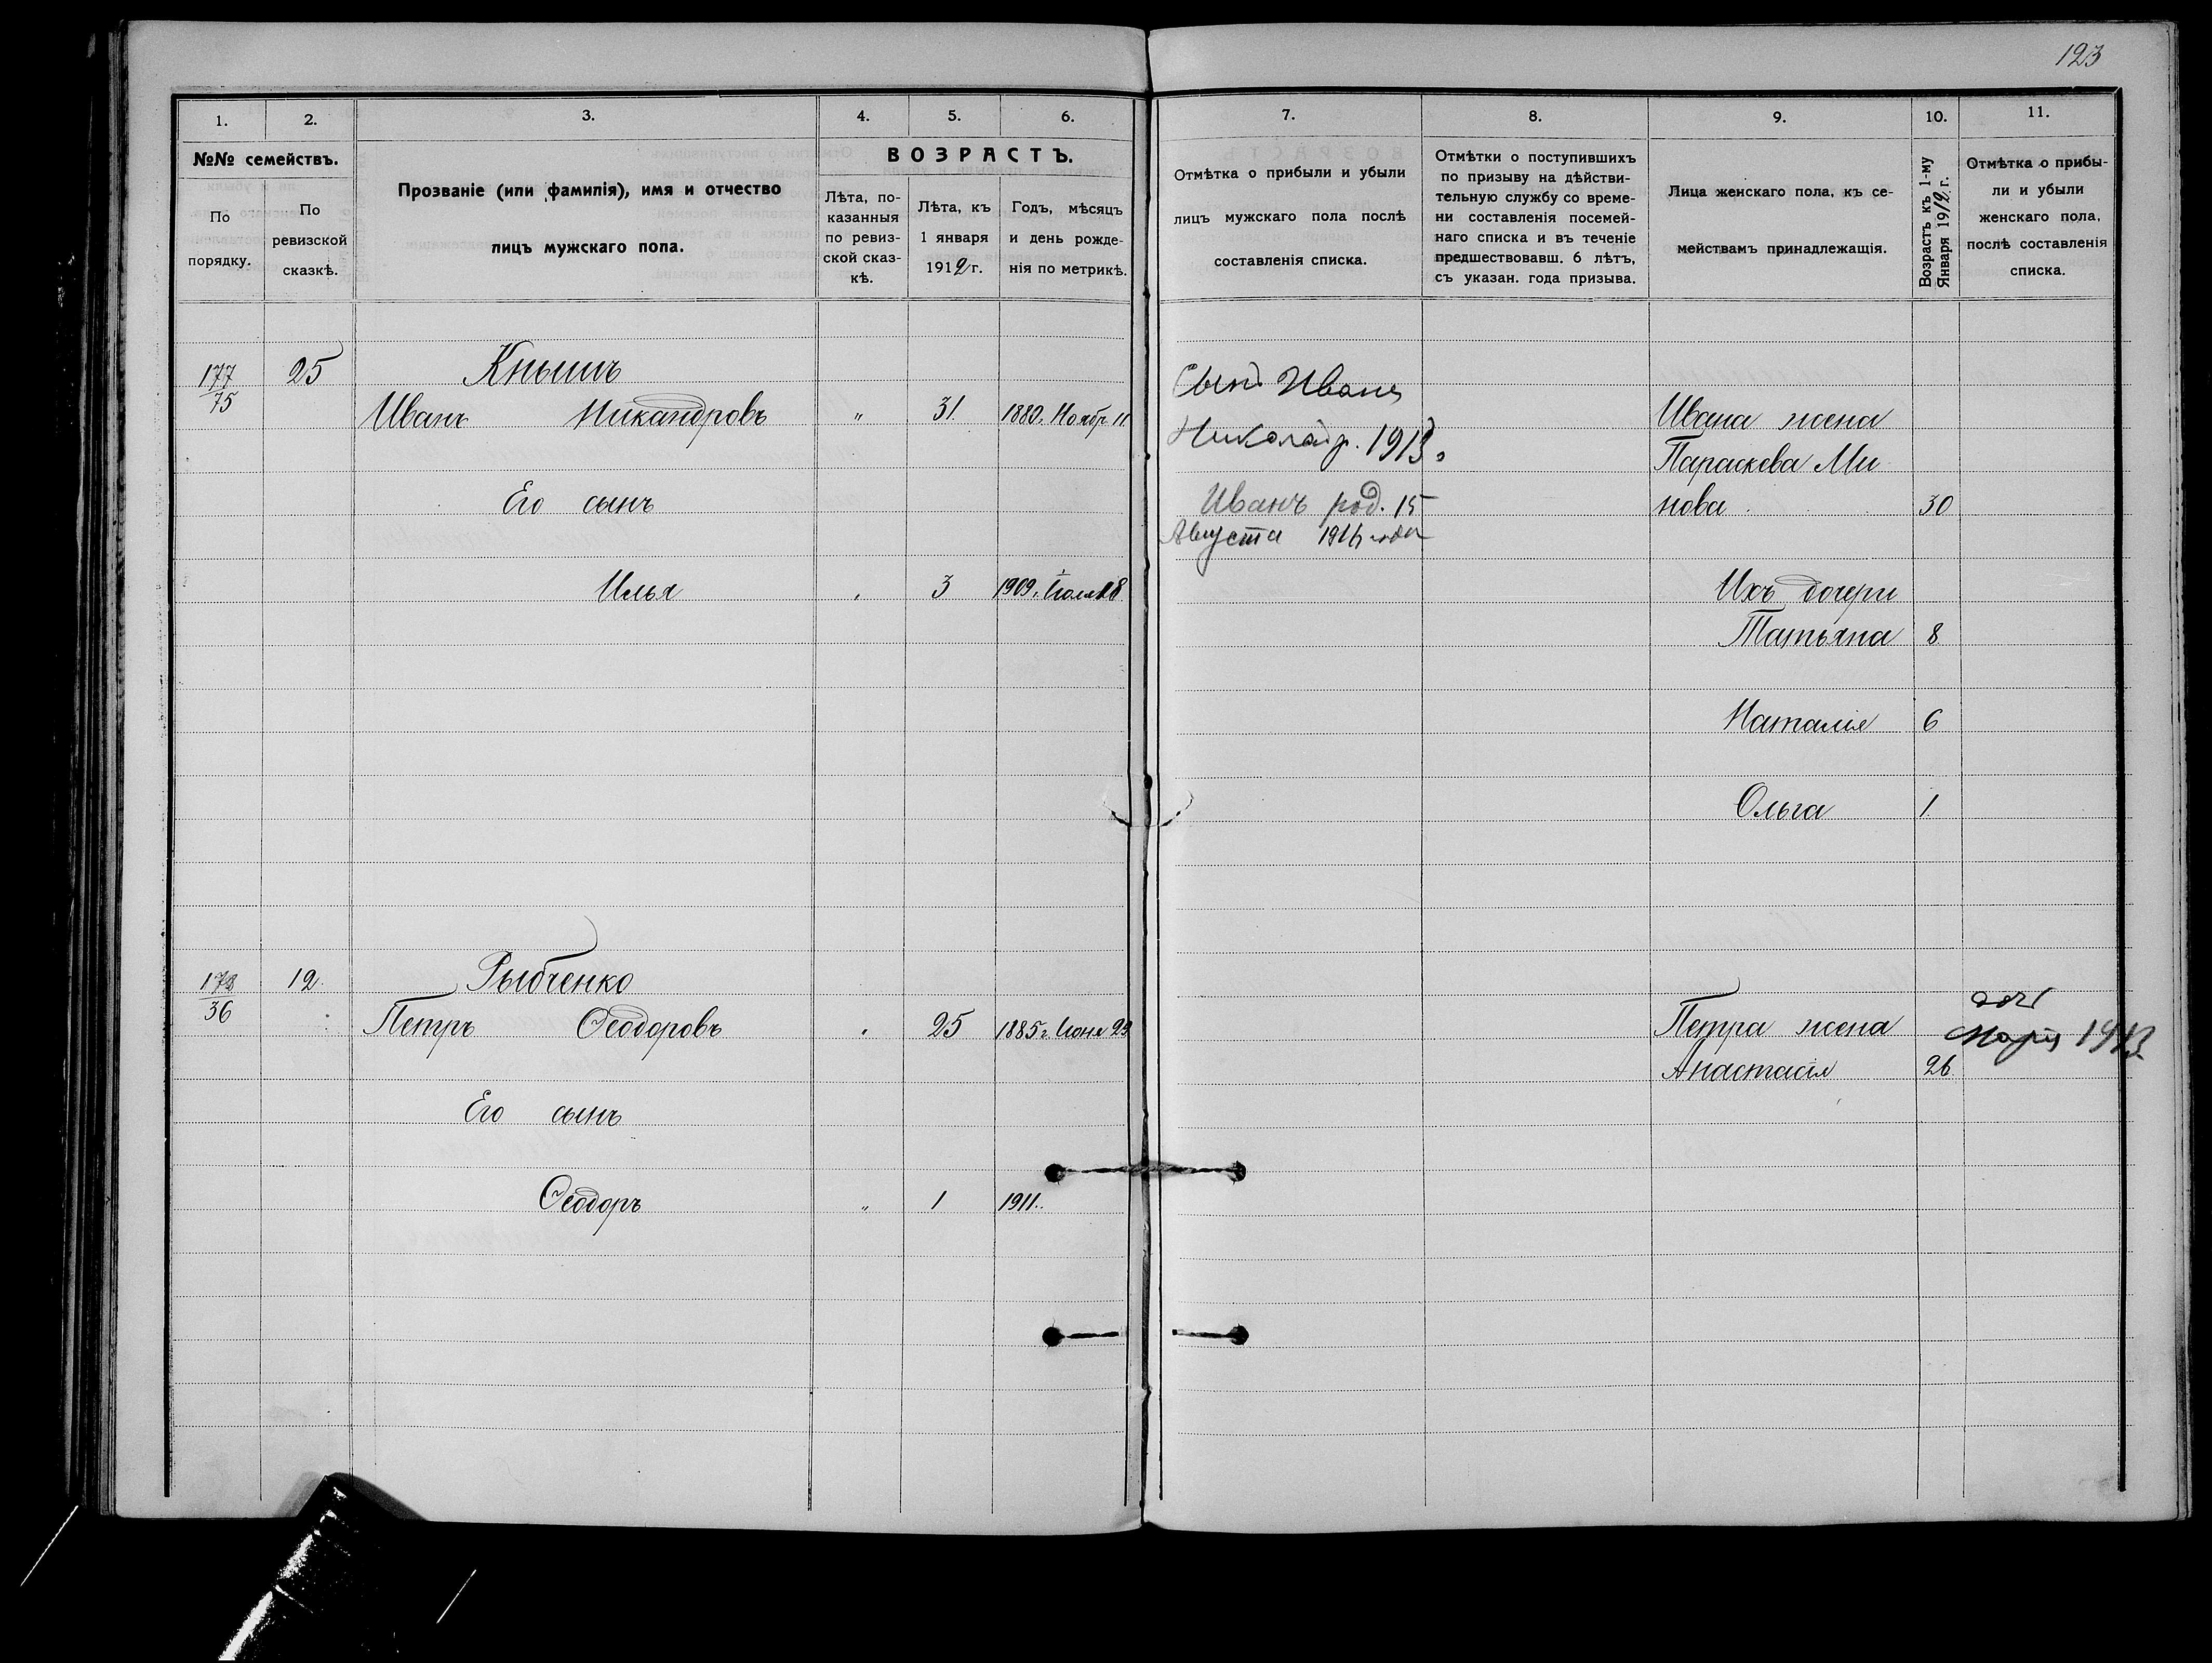 123
1. 2. 3. 4. 5. 6. 7. 8. 9. 10. 11.
№№ семействъ.
По порядку.
По ревизской сказкѣ.
Прозваніе (или фамилія), имя и отчество
лицъ мужскаго пола.
ВОЗРАСТЪ.
Лѣта, по-
казанныя
по ревиз-
ской сказ-
кѣ.
Лѣта, къ
1 января
1912 г.
Годъ, мѣсяцъ
и день рожде-
нія по метрикѣ.
Отмѣтка о прибыли и убыли
лицъ мужскаго пола послѣ
составленія списка.
Отмѣтки о поступившихъ
по призыву на дѣйстви-
тельную службу со време-
ни составленія посемей-
наго списка и въ теченіе
предшествовавш. 6 лѣтъ,
съ указан. года призыва.
Лица женскаго пола, къ се-
мействамъ принадлежащія.
Возрастъ къ 1-му
Января 1912 г.
Отмѣтка о прибы-
ли и убыли
женскаго пола,
послѣ составленія
списка.
177 25 Кнышъ
75
Иванъ Никандровъ " 31. 1880. Ноябр. 11
Его сынъ
Илья " 3 1909. Іюля 18
Сынъ Ивана
Николай р. 1913.
Иванъ род. 15
Августа года
Ивана жена
Параскева Ми
нова 30
Ихъ дочери
Татьяна 8
Наталія 6
Ольга 1
178 12. Рыбченко
36
Петръ Ѳеодоровъ " 25 1885 г. Іюня 29
Его сынъ
Ѳеодоръ " 1 1911.
Петра жена
Анастасія 26
Марія 1913